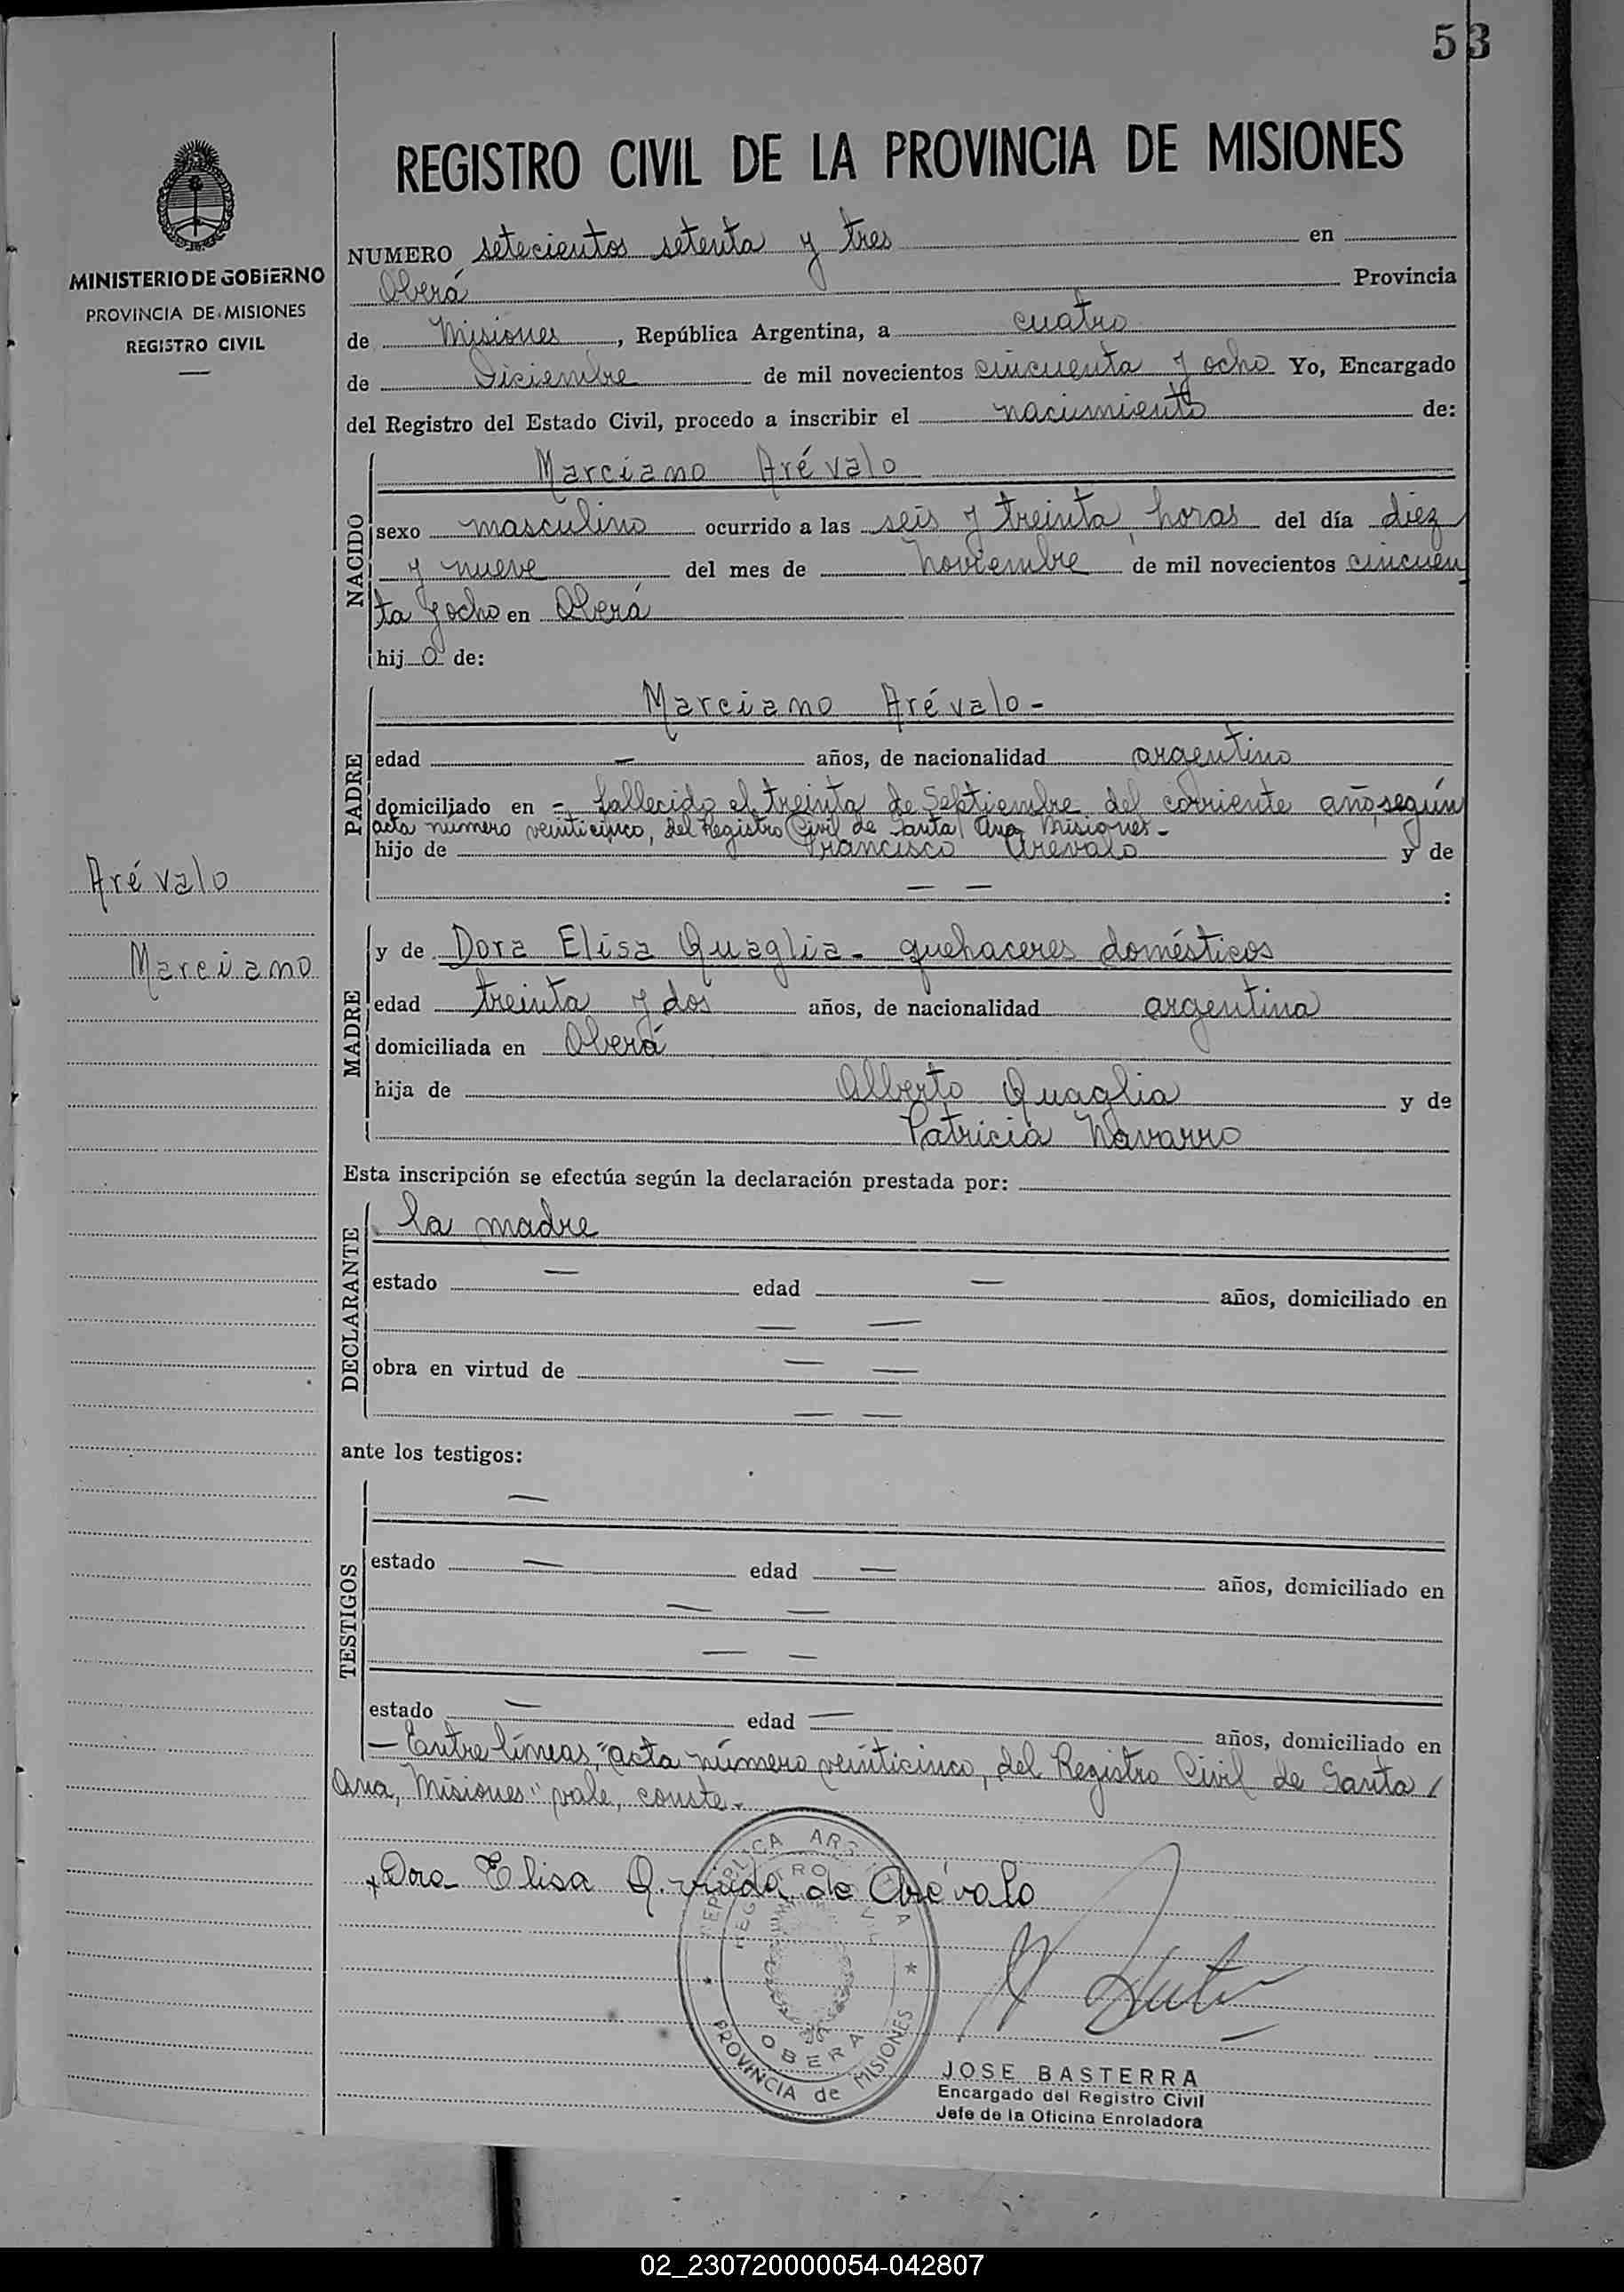 53
REGISTRO CIVIL DE LA PROVINCIA DE MISIONES
MINISTERIO DE GOBIERNO
PROVINCIA DE MISIONES
REGISTRO CIVIL
NUMERO setecientos setenta y tres en
Oberá Provincia
de Misiones, República Argentina, a cuatro
de Diciembre de mil novecientos cincuenta y ocho Yo, Encargado
del Registro del Estado Civil, procedo a inscribir el nacimiento de:
NACIDO
Marciano Arévalo
sexo masculino ocurrido a las seis y treinta horas del día diez
y nueve del mes de Noviembre de mil novecientos cincuen
ta y ocho en Oberá
hij o de:
PADRE
Marciano Arévalo -
edad — años, de nacionalidad argentino
domiciliado en = fallecido el treinta de Septiembre del corriente año, según
acta número veinticinco, del Registro Civil de Santa Ana Misiones -
hijo de Francisco Arévalo y de
— — :
Arévalo
Marciano
MADRE
y de Dora Elisa Quaglia - quehaceres domésticos
edad treinta y dos años, de nacionalidad argentina
domiciliada en Oberá
hija de Alberto Quaglia y de
Patricia Navarro
Esta inscripción se efectúa según la declaración prestada por:
DECLARANTE
la madre
estado — edad — años, domiciliado en
— —
obra en virtud de — —
— —
ante los testigos:
TESTIGOS
—
estado — edad — años, domiciliado en
— —
— —
estado — edad — años, domiciliado en
— Entre líneas, "acta número veinticinco, del Registro Civil de Santa /
Ana, Misiones" vale, conste.-
x Dora Elisa Q. viuda de Arévalo
REPUBLICA ARGENTINA
REGISTRO CIVIL
OBERA
PROVINCIA de MISIONES
JOSE BASTERRA
Encargado del Registro Civil
Jefe de la Oficina Enroladora
02_230720000054-042807